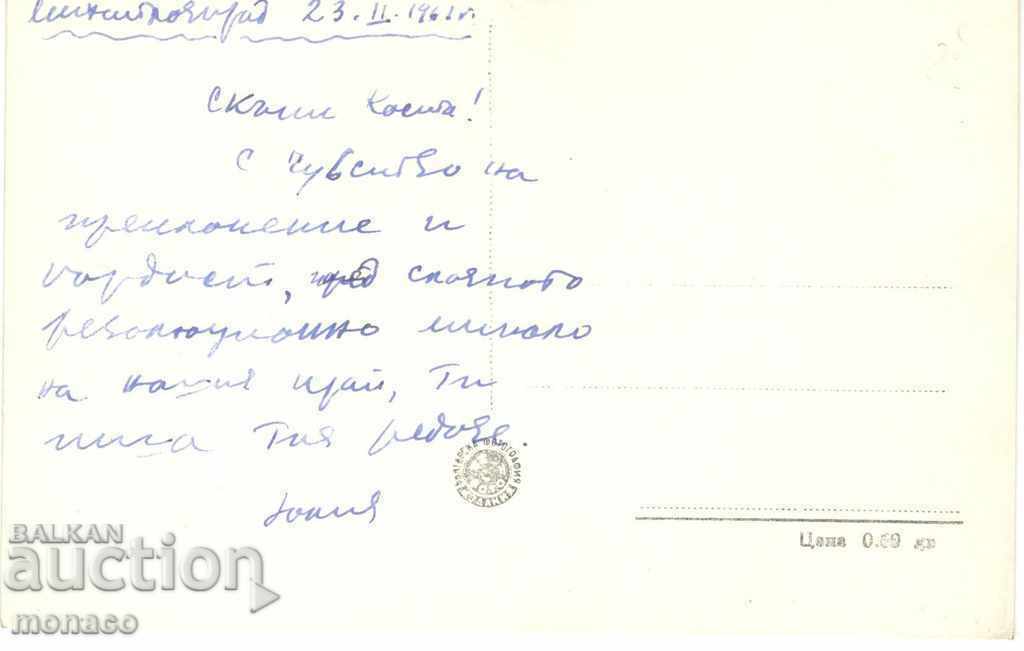 Димитровград 23.II.1961 г.
Скъпи Коста!
С чувство на
преклонение и
гордост, пред славното
революционно минало
на нашия край, Ти
пиша тия редове.
Юлия
БЪЛГАРСКА ФОТОГРАФИЯ
Цена 0.09 лв
BALKAN
auction
monaco